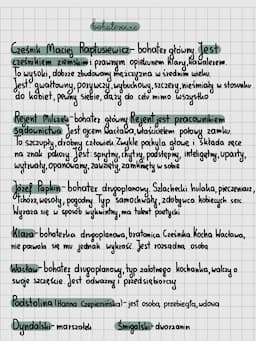 bohaterowie
Cześnik Maciej Raptusiewicz - bohater główny. Jest
cześnikiem ziemskim i prawnym opiekunem Klary, kawalerem.
To wysoki, dobrze zbudowany mężczyzna w średnim wieku.
Jest gwałtowny, porywczy, wybuchowy, szczery, nieśmiały w stosunku
do kobiet, pewny siebie, dąży do celu mimo wszystko
Rejent Milczek - bohater główny Rejent jest pracownikiem
sądownictwa Jest ojcem Wacława, właścicielem połowy zamku.
To szczupły, drobny człowiek. Zwykle pochyla głowę i składa ręce
na znak pokory. Jest: sprytny, chytry, podstępny, inteligętny, uparty,
wytrwały, opanowany, zawzięty, zamknięty w sobie
Józef Papkin - bohater drugoplanowy. Szlachecki hulaka, pieczeniarz,
tchórz, wesoły, pogodny Typ samochwały, zdobywca kobiecych serc
Wyraża się w sposób wykwintny, ma talent poetycki
Klara - bohaterka drugoplanowa, bratanica Cześnika Kocha Wacława,
nie pozwala się mu jednak wykraść. Jest rozsądną osobą
Wacław - bohater drugoplanowy, typ zalotnego kochanka, walczy o
swoje szczęście. Jest odważny i przedsiębiorczy
Podstolina (Hanna Czepiersińska) - jest osobą przebiegłą, wdowa
Dyndalski - marszałek Śmigalski - dworzanin